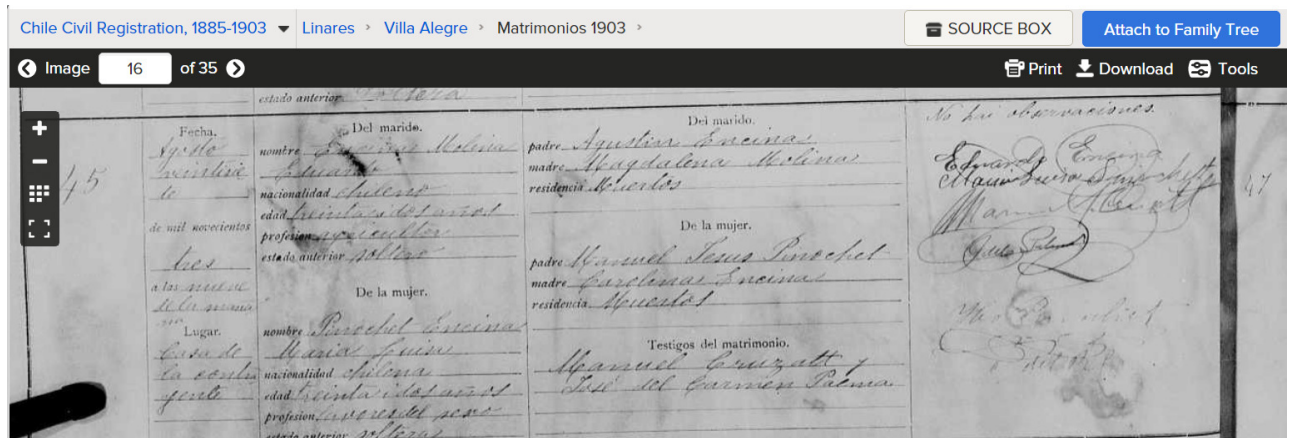 Chile Civil Registration, 1885-1903 Linares Villa Alegre Matrimonios 1903
SOURCE BOX
Attach to Family Tree
Image 16 of 35
Print Download Tools
estado anterior Soltera
45
Fecha.
Agosto
veintisie
te
de mil novecientos
tres
a las nueve
de la maña
na
Lugar.
Casa de
la contra
yente
Del marido.
nombre Encina Molina
Eduardo
nacionalidad chileno
edad treinta i dos años
profesion agricultor
estado anterior soltero
De la mujer.
nombre Pinochet Encina
Maria Luisa
nacionalidad chilena
edad treinta i dos años
profesion labores del sexo
estado anterior soltera
Del marido.
padre Agustin Encina
madre Magdalena Molina
residencia Muertos
De la mujer.
padre Manuel Jesus Pinochet
madre Carolina Encina
residencia Muertos
Testigos del matrimonio.
Manuel Cruzatt y
José del Carmen Palma
No hai observaciones.
Eduardo Encina
Maria Luisa Pinochet
Manuel Cruzatt
47